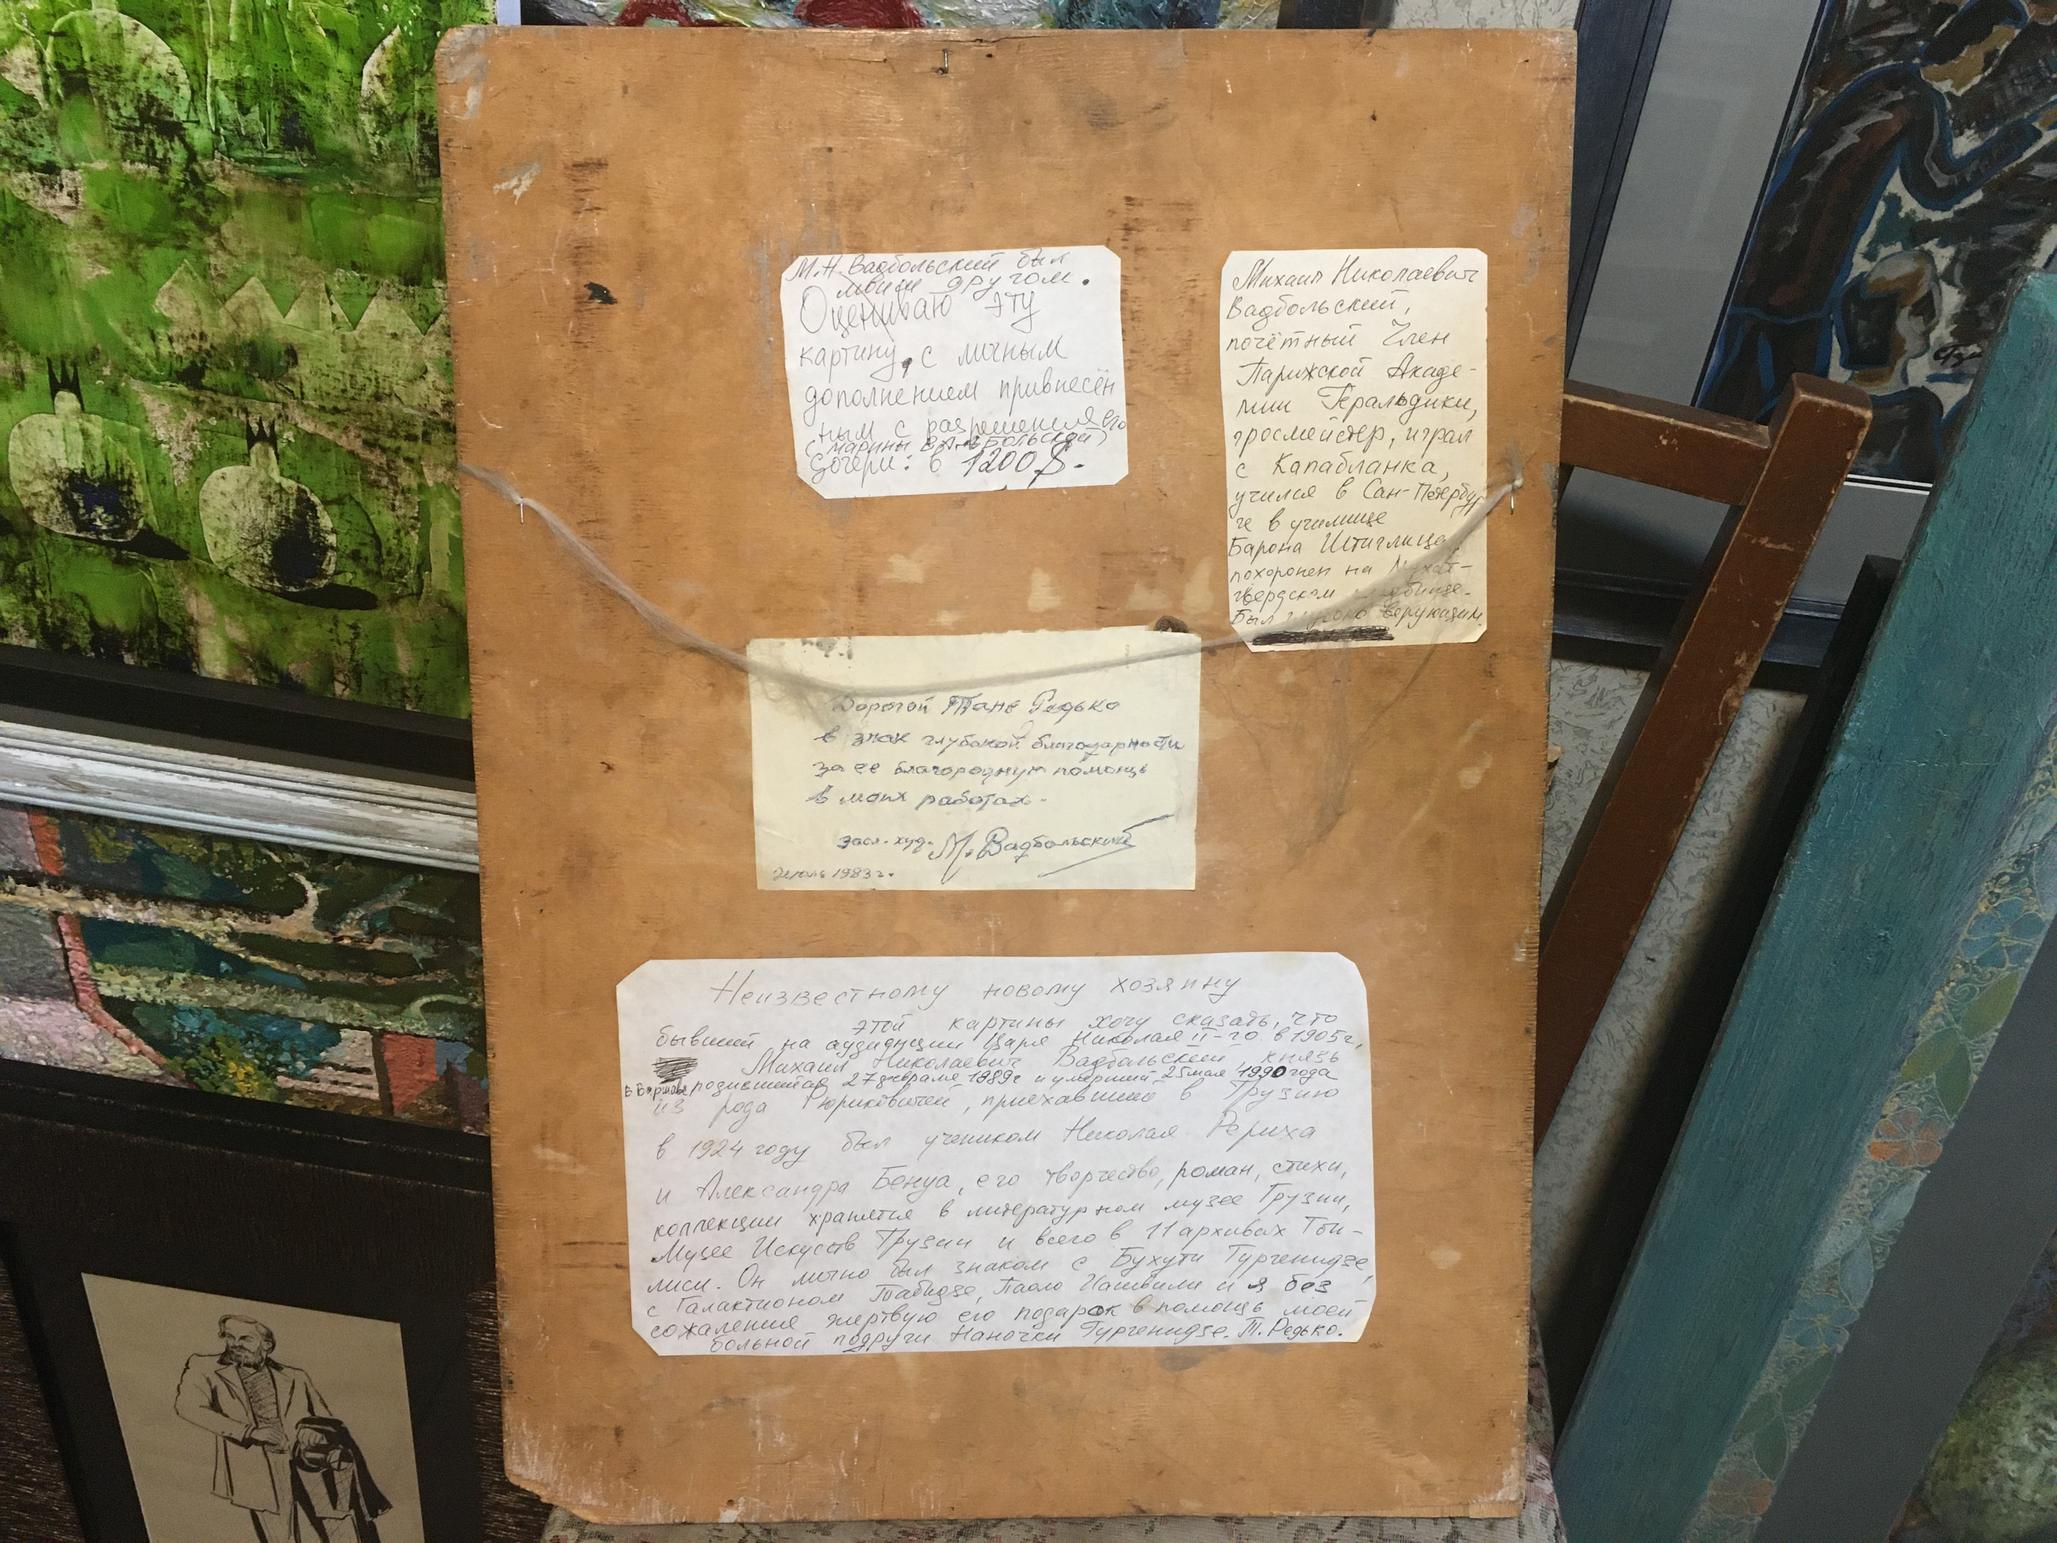 М.Н. Вадбольский был
моим другом.
Оцениваю эту
картину, с личным
дополнением привнесён
ным с разрешения его
(Марины Вадбольской)
дочери: в 1200 $.
Михаил Николаевич
Вадбольский,
почётный Член
Парижской Акаде-
мии Геральдики,
гросмейстер, играл
с Капабланка,
учился в Сан-Петербур
ге в училище
Барона Штиглица,
похоронен на Мухат-
гвердском кладбище.
Был глубоко верующим.
Дорогой Тане Редько
в знак глубокой благодарности
за ее благородную помощь
в моих работах.
засл. худ. М. Вадбольский
1983 г.
Неизвестному новому хозяину
этой картины хочу сказать, что
бывший на аудиенции Царя Николая II-го в 1905 г,
Михаил Николаевич Вадбольский, князь
родившийся 27 февраля 1989 г и умерший 25 мая 1990 года
из рода Рюриковичей, приехавший в Грузию
в 1924 году был учеником Николая Рериха
и Александра Бенуа, его творчество, роман, стихи,
коллекции хранятся в литературном музее Грузии,
Музее Искусств Грузии и всего в 11 архивах Тби-
лиси. Он лично был знаком с Бухути Гургенидзе,
с Галактионом Табидзе, Паоло Иашвили и я без
сожаления жертвую его подарок в помощь моей
больной подруги Наночки Гургенидзе. Т. Редько.